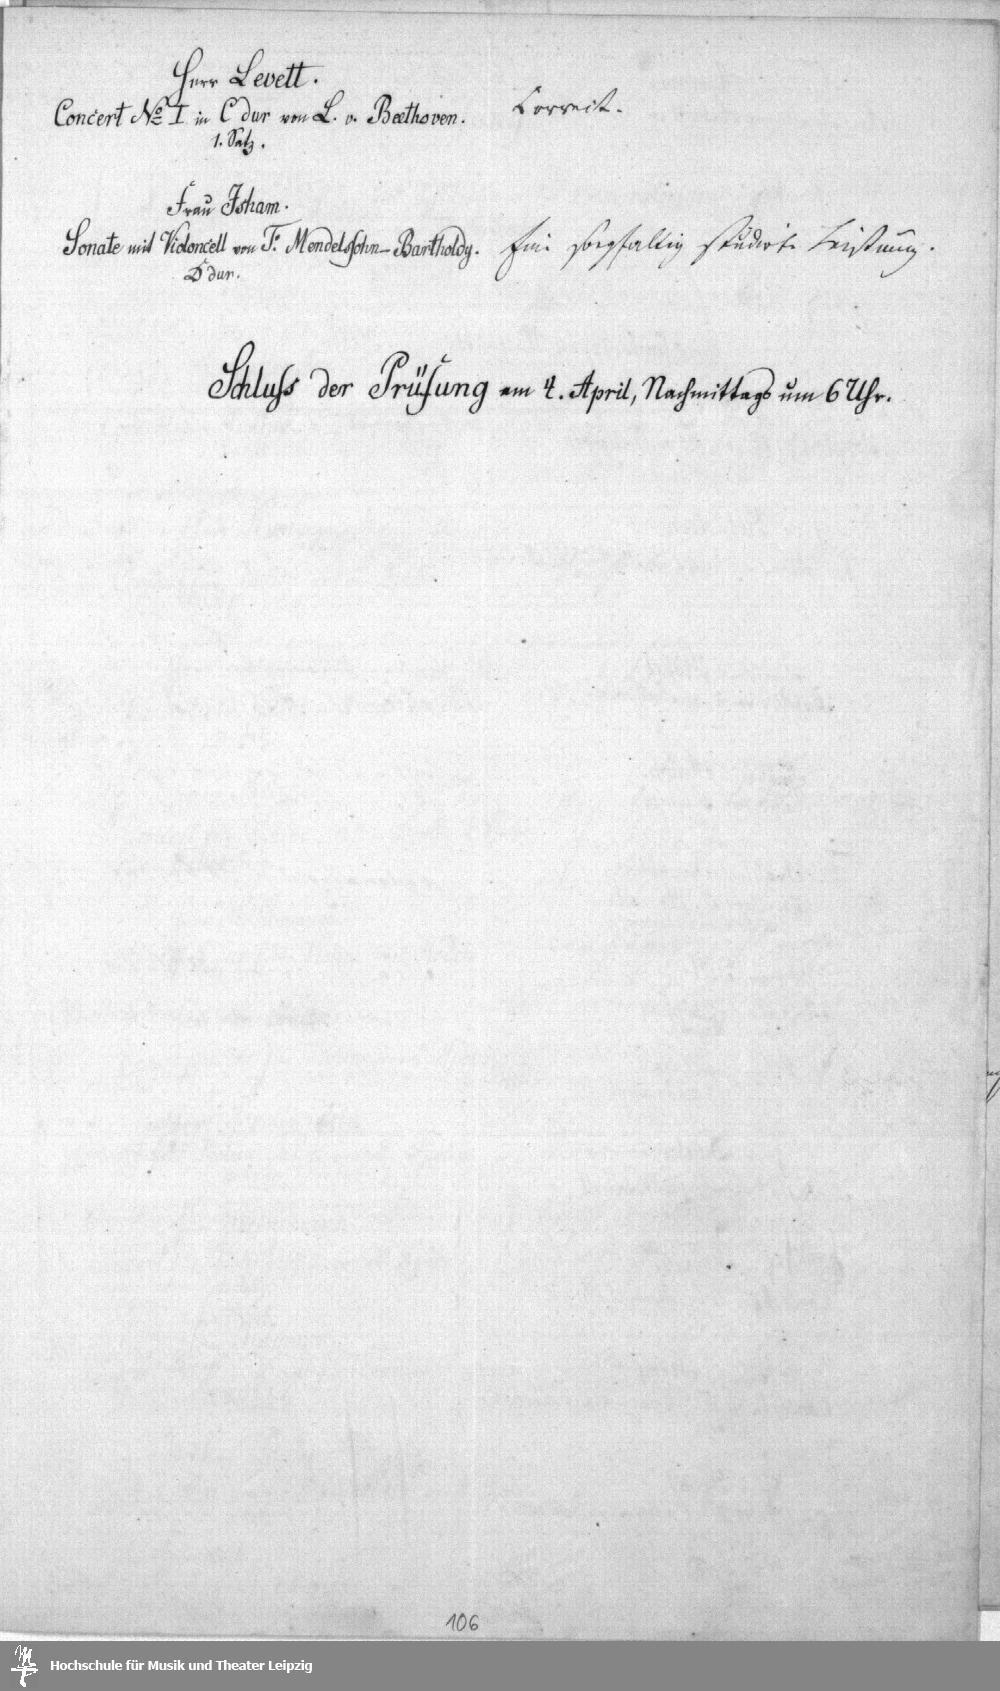 Herr Levett.
Concert No I in C dur von L. v. Beethoven. Correct.
1. Satz.
Frau Isham.
Sonate mit Violoncell von F. Mendelssohn-Bartholdy. Eine sorgfältig studirte Leistung.
D dur.
Schluss der Prüfung am 4. April, Nachmittags um 6 Uhr.
106
Hochschule für Musik und Theater Leipzig